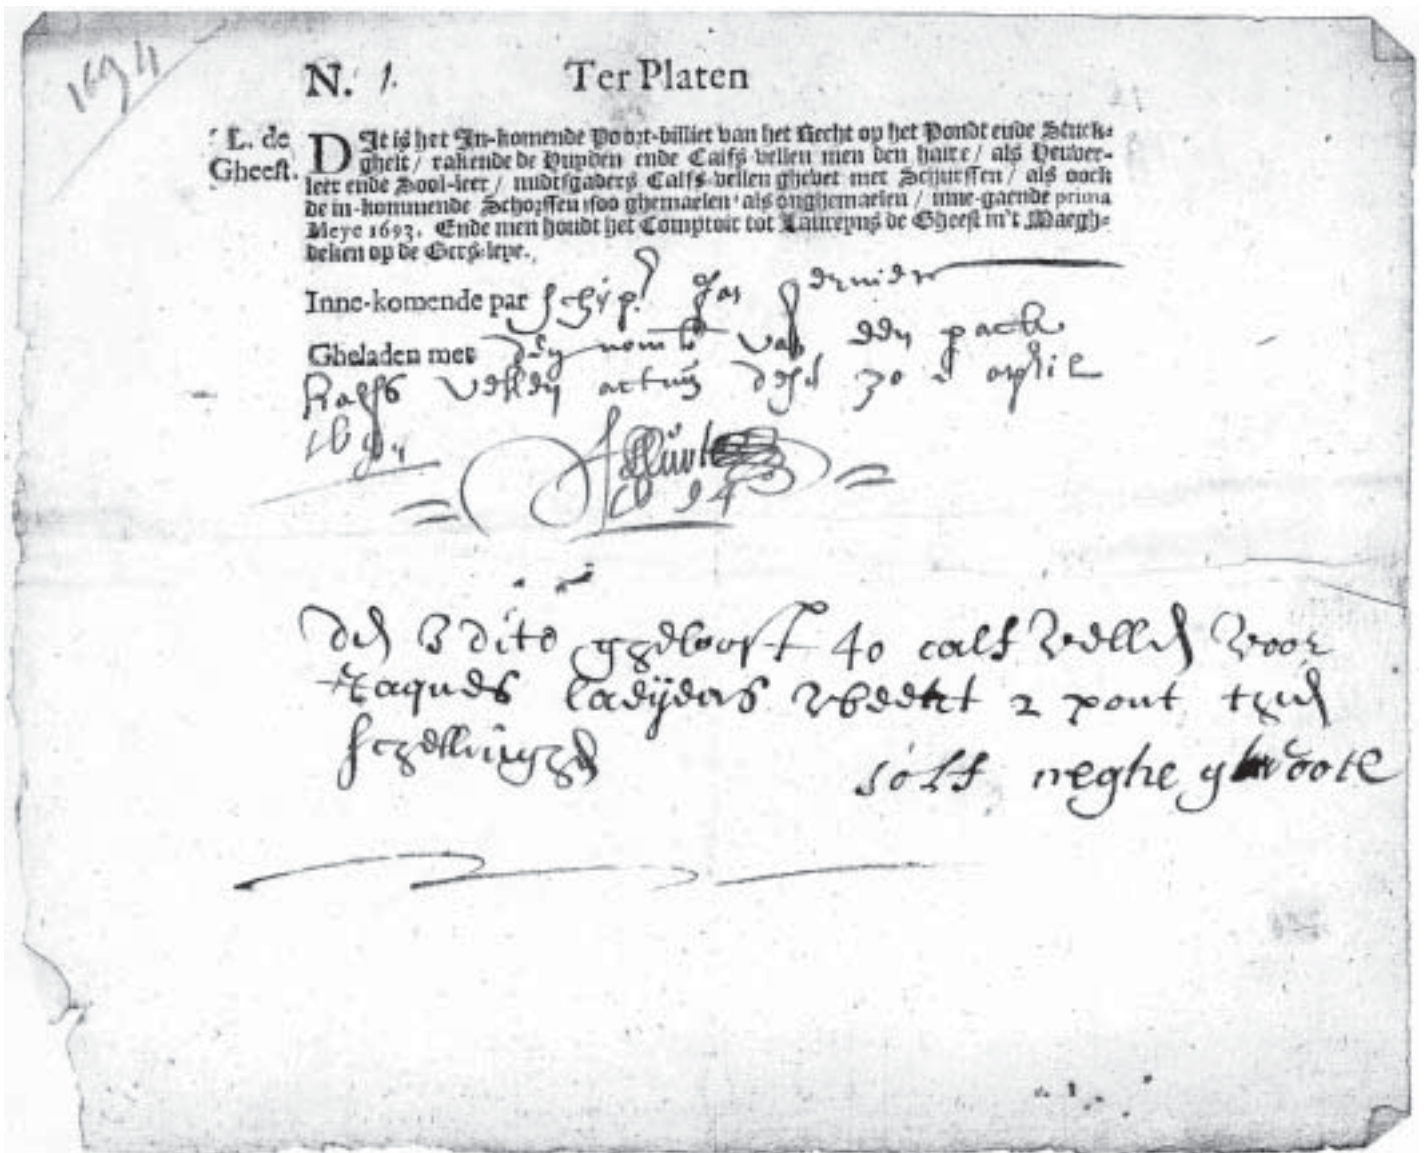 1694
N. 1. Ter Platen
L. de
Gheest.
DIt is het In-komende Poort-billiet van het Recht op het Pondt ende Stuck-
gheit / rakende de Huyden ende Calfs-vellen men den haire / als Heuver-
leer ende Sool-leer / midtsgaders Calfs-vellen ghevet met Schursen / als oock
de in-kommende Schorssen soo ghemaelen als onghemaelen / inne-gaende prima
Meye 1693. Ende men houdt het Comptoir tot Laureyns de Gheest in't Maegh-
deken op de Geers-leye.
Inne-komende par schip
Gheladen met van een pack
kalfs vellen actum desen 30 april
1694
1694
den 3 dito gheloost 40 calf vellen voor
Jaques weert 2 pont thien
schellinghen
solf neghe groote